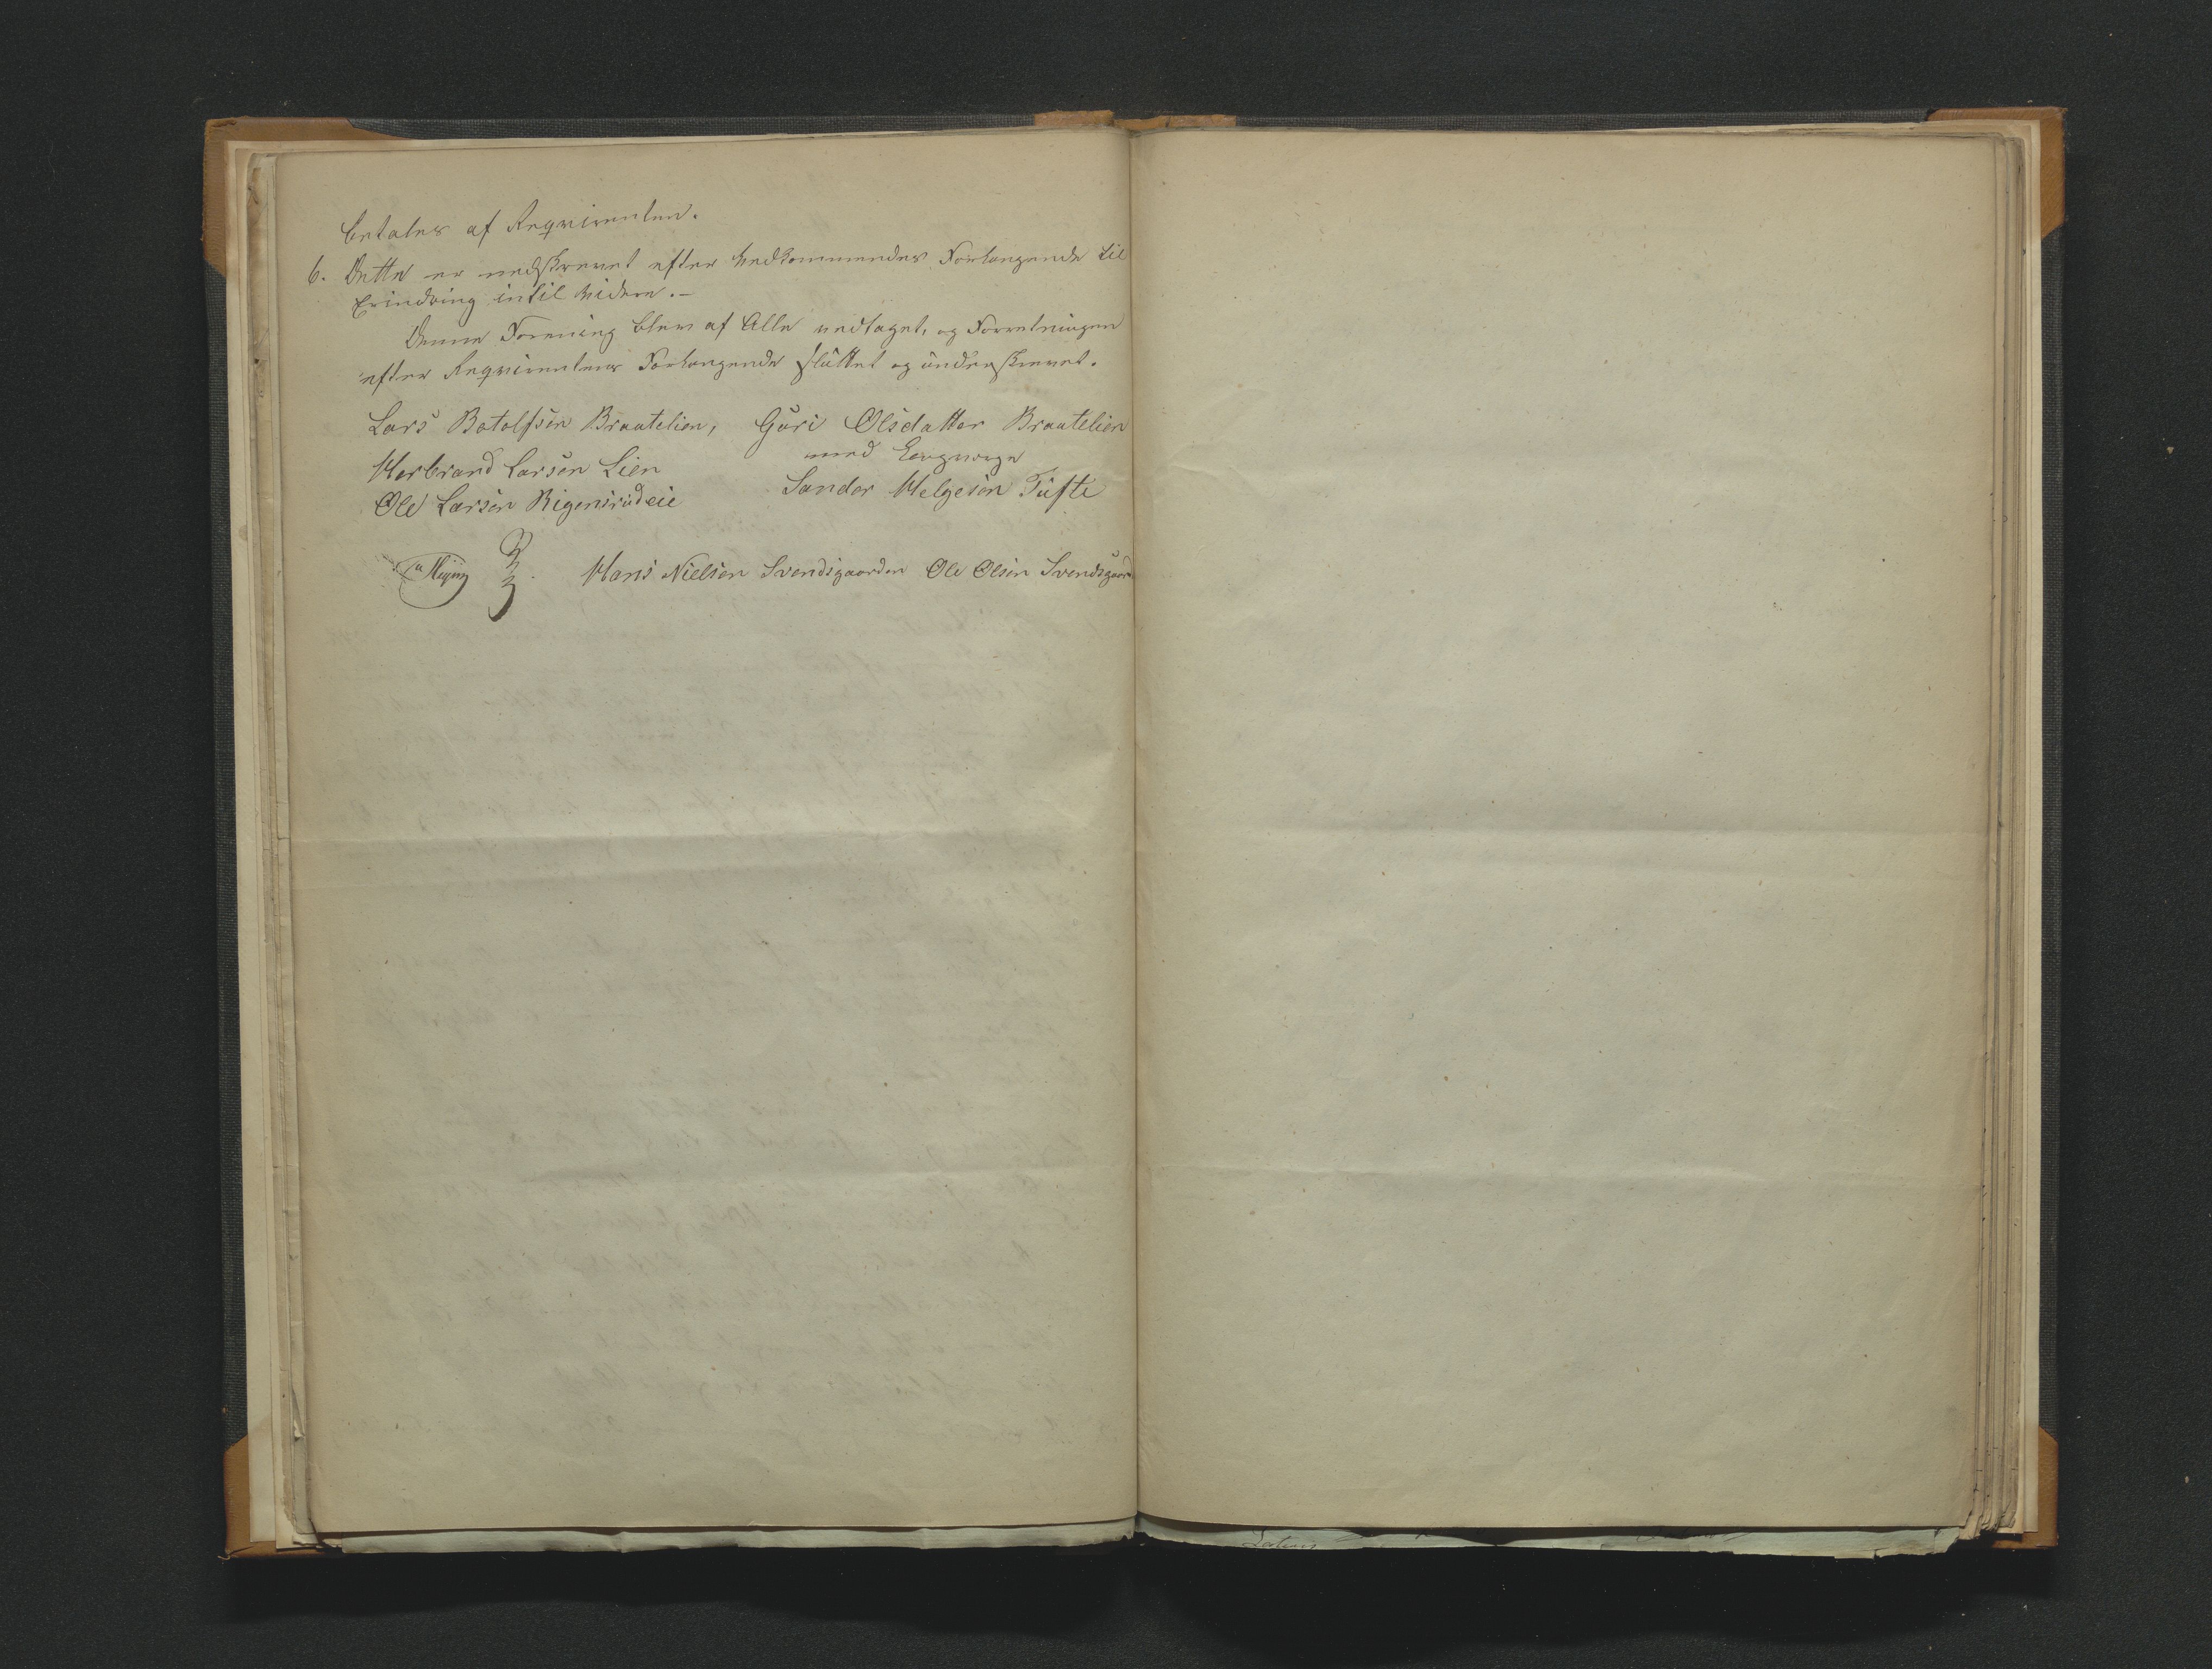 betales af Reqvirenten.
6. Dette er nedskrevet efter Vedkommendes Forlangende til
Erindring indtil videre.-
Denne Forening blev af Alle vedtaget, og Forretningen
efter Reqvirentens Forlangende sluttet og underskrevet.
Lars Botolfsen Braatelien, Guri Olsdatter Braatelien
Herbrand Larsen Lien med Laugværge
Ole Larsen Rigensrudeie Sander Helgesen Tufte
Hans Nielsen Svendsgaarden Ole Olsen Svendsgaard